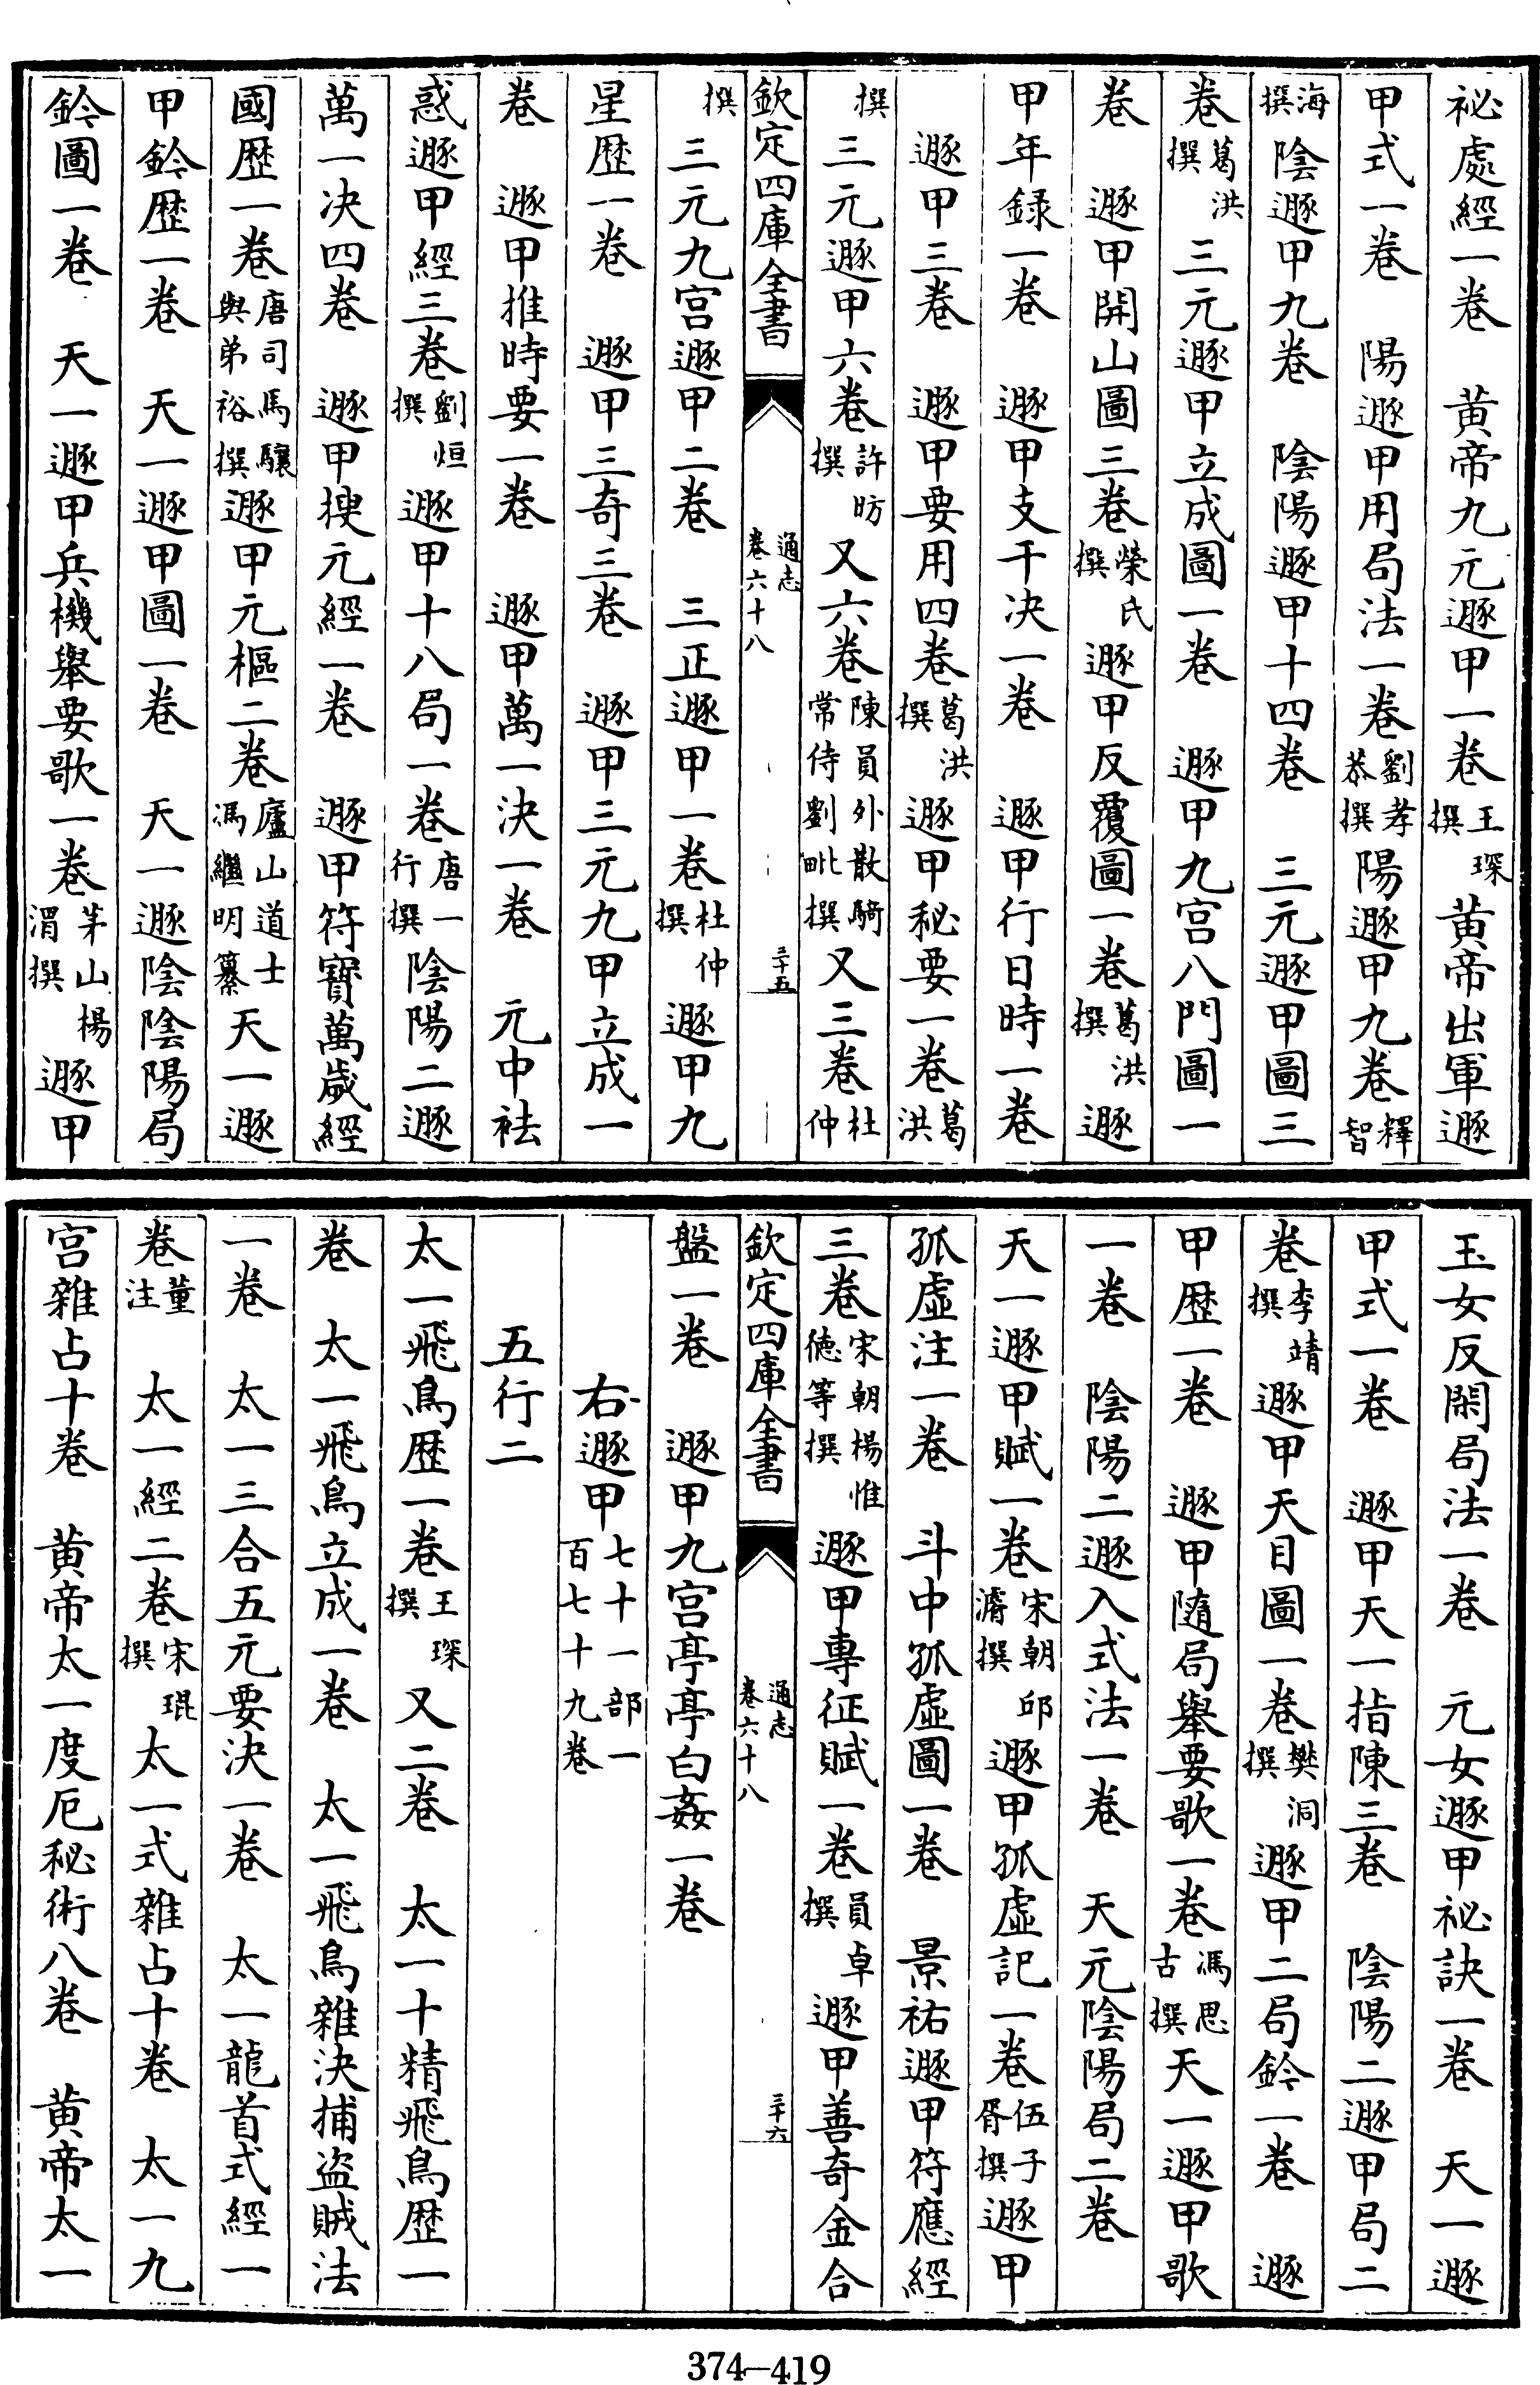 祕處經一卷　黄帝九元遯甲一卷王琛撰黄帝出軍遯
甲式一卷　陽遯甲用局法一卷劉孝恭撰陽遯甲九卷釋智
海撰陰遯甲九卷　陰陽遯甲十四卷　三元遯甲圖三
卷葛洪撰三元遯甲立成圖一卷　遯甲九宫八門圖一
卷　遯甲開山圖三卷榮氏撰遯甲反覆圖一卷葛洪撰遯
甲年録一卷　遯甲支干决一卷　遯甲行日時一卷
遯甲三卷　遯甲要用四卷葛洪撰遯甲秘要一卷葛洪
撰三元遯甲六卷許昉撰又六卷陳員外散騎常侍劉毗撰又三卷杜仲
欽定四庫全書　通志卷六十八　三十五
撰三元九宫遯甲二卷　三正遯甲一卷杜仲撰遯甲九
星歴一卷　遯甲三奇三卷　遯甲三元九甲立成一
卷　遯甲推時要一卷　遯甲萬一決一卷　元中袪
惑遯甲經三卷劉烜撰遯甲十八局一卷唐一行撰陰陽二遯
萬一决四卷　遯甲揬元經一卷　遯甲符寶萬歲經
國歴一卷唐司馬驤與弟裕撰遯甲元樞二卷廬山道士馮繼明纂天一遯
甲鈐歴一卷　天一遯甲圖一卷　天一遯陰陰陽局
鈐圖一卷　天一遯甲兵機舉要歌一卷茅山楊渭撰遯甲
玉女反閑局法一卷　元女遯甲祕訣一卷　天一遯
甲式一卷　遯甲天一指陳三卷　陰陽二遯甲局二
卷李靖撰遯甲天目圖一卷樊洞撰遯甲二局鈐一卷　遯
甲歴一卷　遯甲隨局舉要歌一卷馮思古撰天一遯甲歌
一卷　陰陽二遯入式法一卷　天元陰陽局二卷
天一遯甲賦一卷宋朝邱濬撰遯甲孤虛記一卷伍子胥撰遯甲
孤虛注一卷　斗中孤虛圖一卷　景祐遯甲符應經
三卷宋朝楊惟德等撰遯甲專征賦一卷員卓撰遯甲善奇金合
欽定四庫全書　通志卷六十八　三十六
盤一卷　遯甲九宫亭亭白姦一卷
右遯甲七十一部一百七十九卷
五行二
太一飛鳥歴一卷王琛撰又二卷　太一十精飛鳥歴一
卷　太一飛鳥立成一卷　太一飛鳥雜決捕盗賊法
一卷　太一三合五元要決一卷　太一龍首式經一
卷董注　太一經二卷宋琨撰太一式雜占十卷　太一九
宫雜占十卷　黄帝太一度厄秘術八卷　黄帝太一
374—419